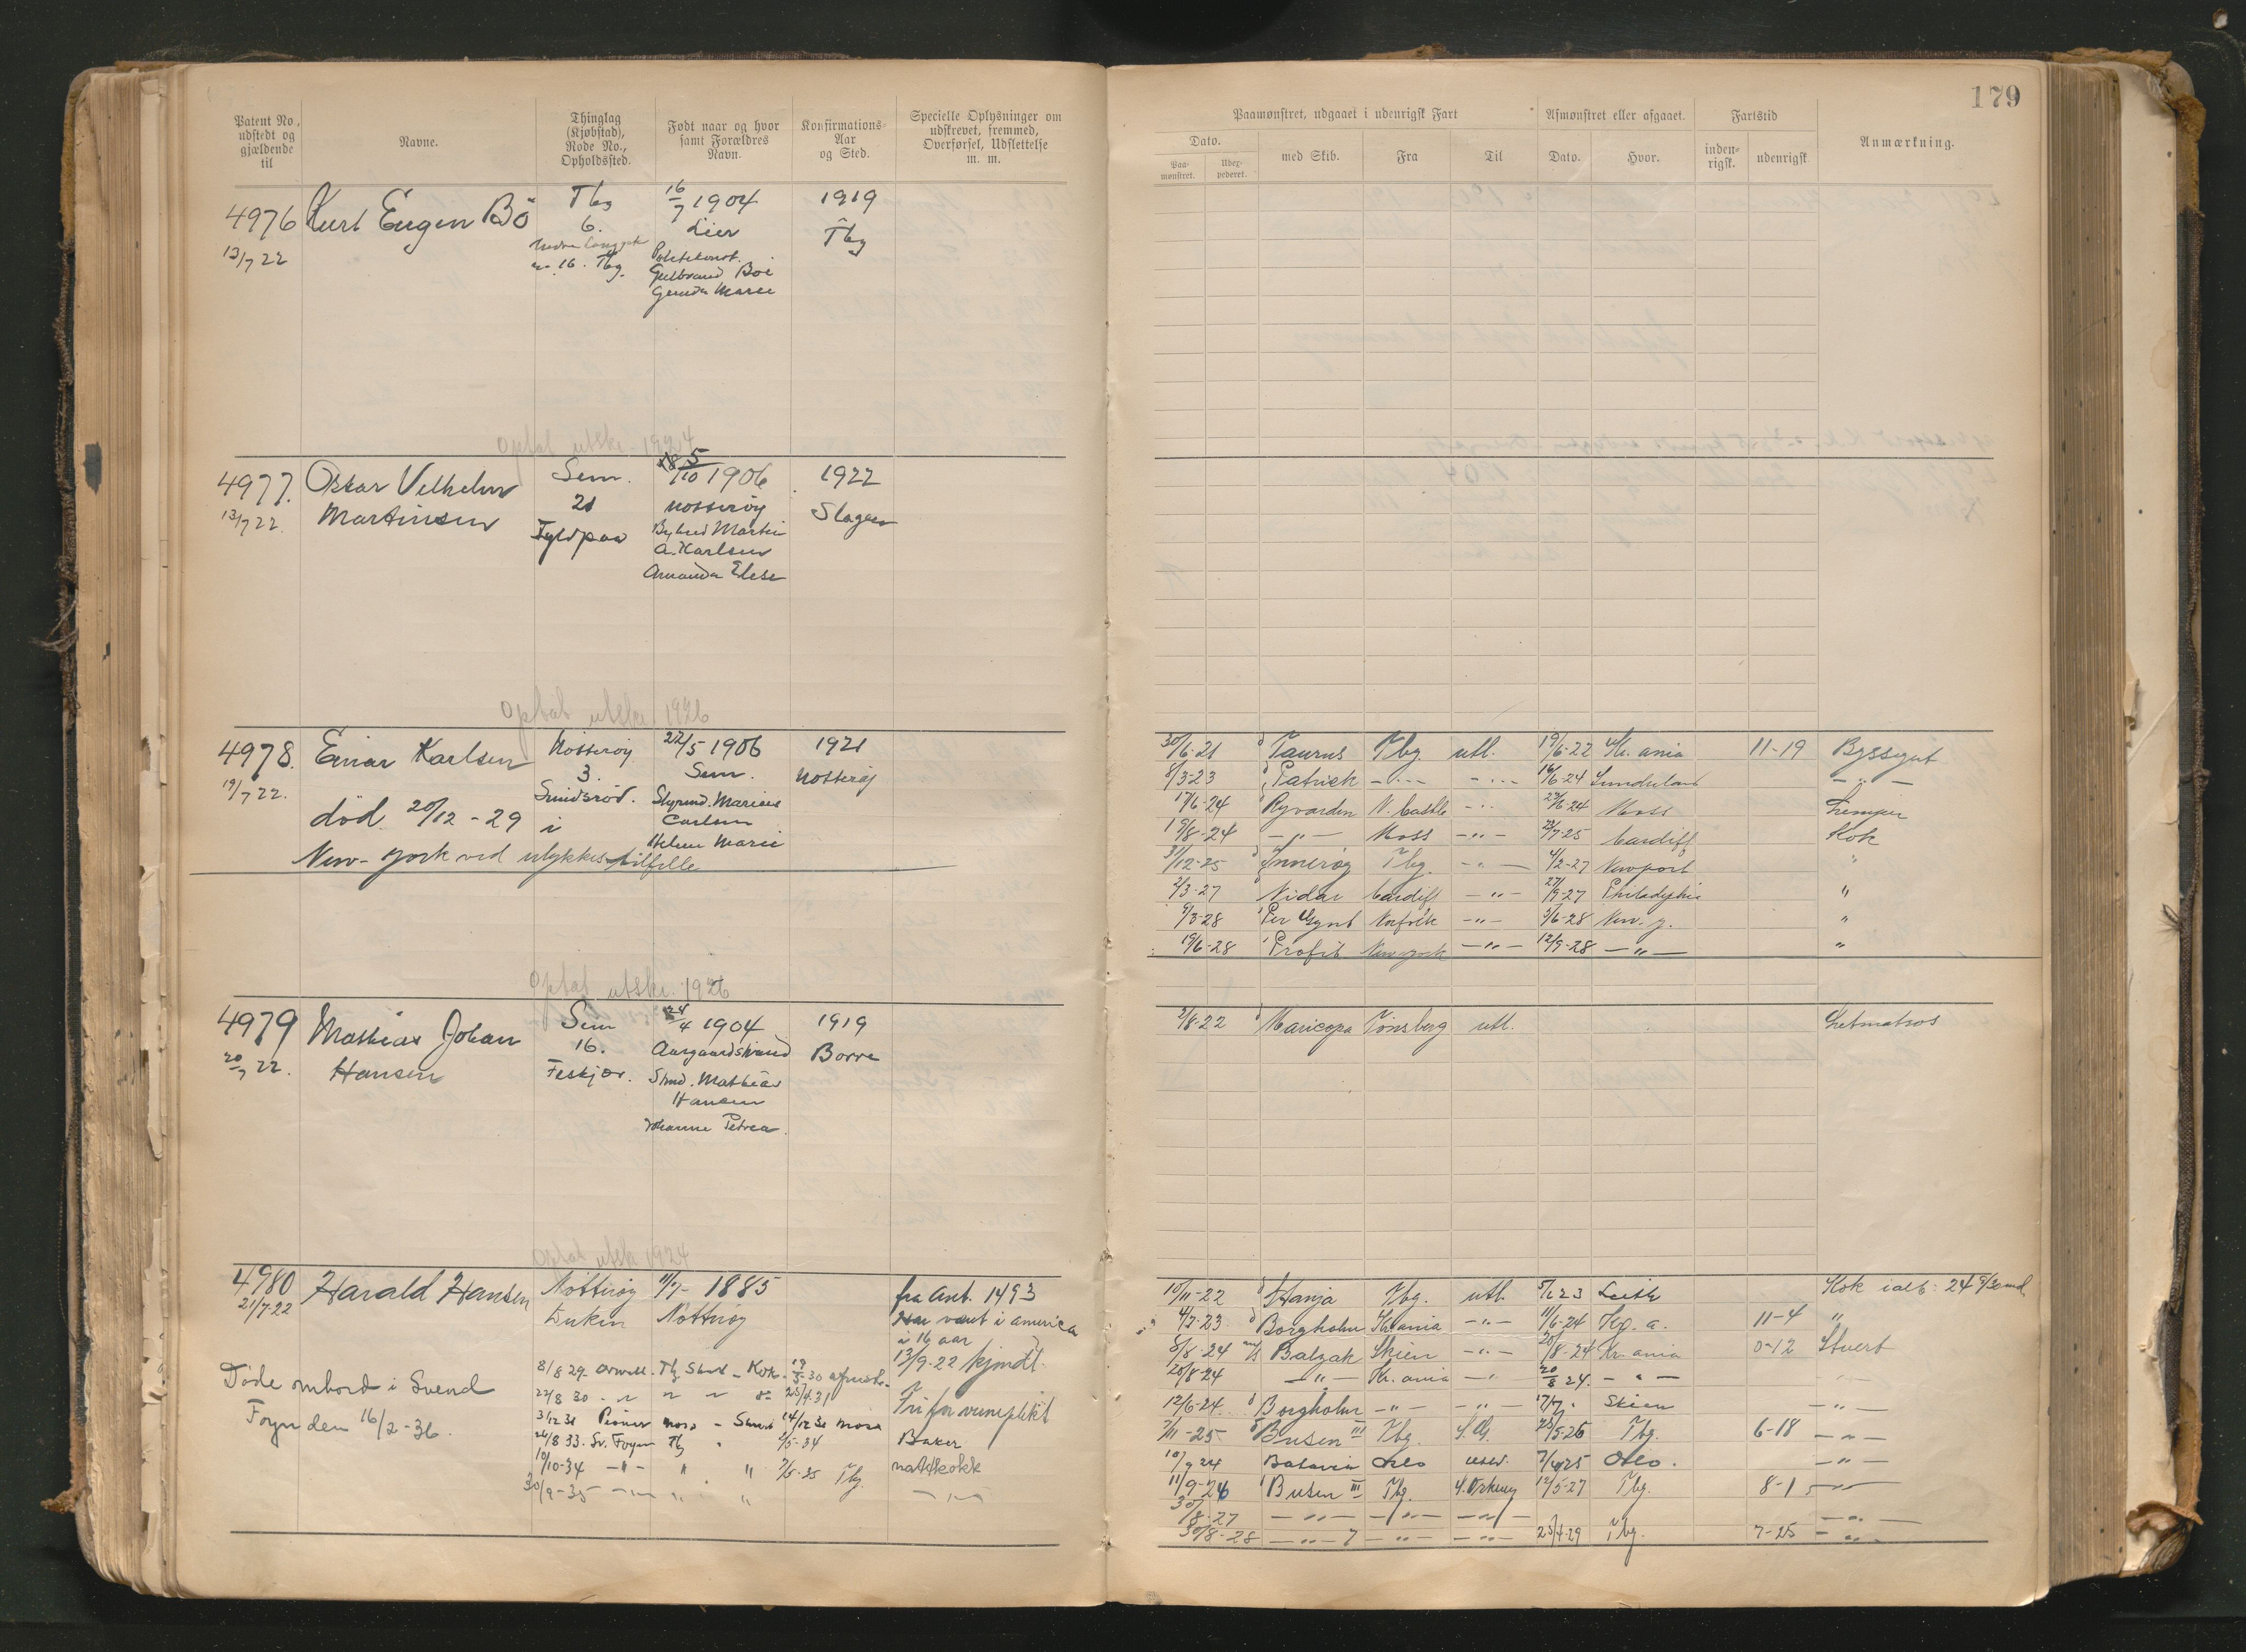 179
Patent No., udstedt og gjældende til
Navne.
Thinglag (Kjøbstad), Rode No., Opholdssted.
Født naar og hvor samt Forældres Navn.
Konfirmations- Aar og Sted.
Specielle Oplysninger om udskrevet, fremmed, Overførsel, Udslettelse m. m.
4976 Kurt Eugen Bö Tbg 16/7 1904 1919
13/7 22 6. Lier Tbg
no. 16. Tbg. Politikonst.
Gulbrand Böe
Gunda Marie
Optat utskr. 1924
4977. Oskar Vilhelm Sem. 5/10 1906 1922
13/7 22. Martinsen 21 Notterøy Slagen
Fyldpaa Martin
A. Karlsen
Amanda Elise
Optat utskr. 1926
4978. Einar Karlsen Nötterøy 22/5 1906 1921
19/7 22. 3. Sem. Notterøy
Smidsrød. Styrmd. Marius
Carlsen
död 20/12 - 29 i Helene Marie
New-York ved ulykkestilfelle
Optat utskr. 1926
4979 Mathias Johan Sem 24/4 1904 1919
20/7 22. Hansen 16. Aargaardstrand Borre
Feskjær. Mathias
Hansen
Johanne Petrea.
Optat utskr. 1924
4980 Harald Hansen Nötteröy 11/7- 1885 fra Ant. 1493
21/7-22 Duken Nötteröy Har vært i america
i 16 aar
13/9-22 kjendt.
Döde ombord i Svend 8/8 29 - Tbg - Kok -
Foyn den 16/2-36. 22/8 30 - " " " 25/4 31 Fri for verneplikt
3/12 31 Pioner Moss - 14/12 31 Moss
26/8 33. Sv. Foyn Tbg " 2/5-34 Baker
10/10-34 -"- " " 7/5-35 Tbg. nattkokk
30/9-35 -"- " " -"-
Paamønstret, udgaaet i udenrigsk Fart
Afmønstret eller afgaaet.
Fartstid
Anmærkning.
Dato.
Paa- mønstret.
Udex- pederet.
med Skib.
Fra
Til
Dato.
Hvor.
inden- rigsk.
udenrigsk
30/6-21 Taurus Tbg. utl. 19/6-22 Kr.ania 11-19 Byssegut
8/3-23 Patrick -"- -"- 16/6-24 Sunderland -"-
17/6-24 Ryvarden N. Castle -"- 23/6-24 Moss Lemper
19/8-24 -"- Moss -"- 23/7-25 Cardiff Kok
31/12-25 Inneröy Tbg. -"- 4/2-27 Newport "
2/3-27 Nidar Cardiff -"- 27/9-27 Philadelphia "
9/3-28 Per Gynt Norfolk -"- 5/6-28 New-y. "
19/6-28 Profit New york -"- 12/9-28 -"- "
2/8-22 Maricopa Tönsberg utl. Letmatros
10/11-22 Hanja Tbg. utl. 5/1 23 Leith Kok ialt: 24 9/30 md
4/7-23 Borgholm Kr.ania -"- 11/6-24 Kr. a. 11-4 "
8/8-24 Balzak Skien -"- 20/8-24 Kr.ania 0-12 Stuert
20/8-24 -"- Kr.ania -"- 20/8 24. -"- -"-
12/6-24. Borgholm -"- -"- 17/7 " Skien -"-
7/11-25. Busen III Tbg. 25/5-26 Tbg. 6-18 -"-
10/9 24 Batavia Oslo 7/4 25 Oslo. -"-
11/9-26 Busen III Tbg. S. Orkney 12/5-27 Tbg. 8-1 -"-
30/8-27 -"- -"- -"- -"-
30/8-28 -"- -"- -"- 25/4-29 Tbg. 7-25 -"-